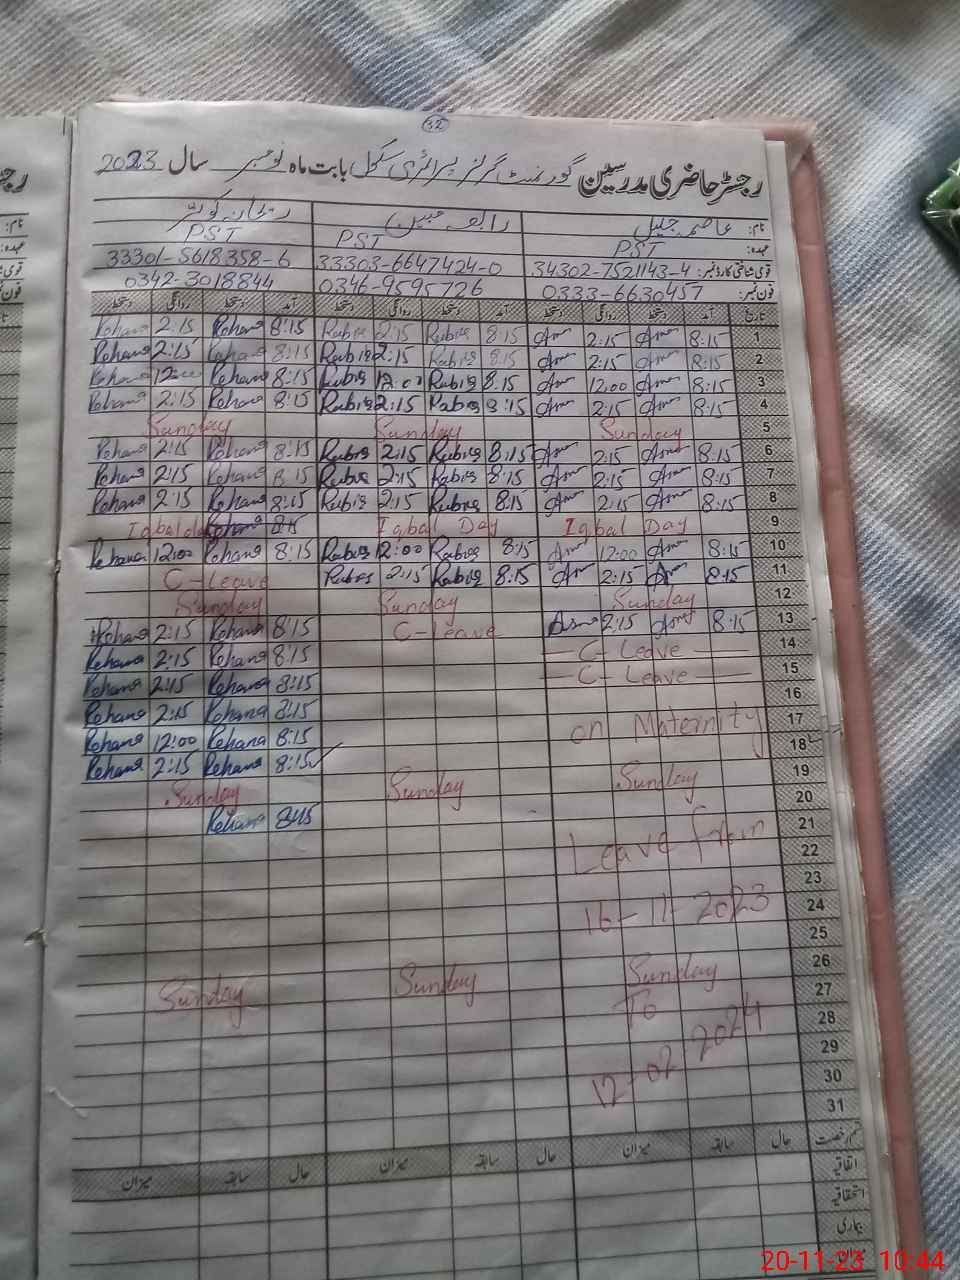 32
رجسٹر حاضری مدرسین گورنمنٹ گرلز پرائمری سکول بابت ماہ نومبر سال 2023
نام: عاصمہ جلیل رابعہ مبین ریحانہ کوثر
عہدہ: PST PST PST
قومی شناختی کارڈ نمبر: 34302-7521143-4 33303-6647424-0 33301-5618358-6
فون نمبر: 0333-6630457 0346-9595726 0342-3018844
تاریخ آمد دستخط روانگی دستخط آمد دستخط روانگی دستخط آمد دستخط روانگی دستخط
Rehana 2:15 Rehana 8:15 Rabia 2:15 Rabia 8:15 Asma 2:15 Asma 8:15 1
Rehana 2:15 Rehana 8:15 Rabia 2:15 Rabia 8:15 Asma 2:15 Asma 8:15 2
Rehana 12:00 Rehana 8:15 Rabia 12:00 Rabia 8:15 Asma 12:00 Asma 8:15 3
Rehana 2:15 Rehana 8:15 Rabia 2:15 Rabia 8:15 Asma 2:15 Asma 8:15 4
Sunday Sunday Sunday 5
Rehana 2:15 Rehana 8:15 Rabia 2:15 Rabia 8:15 Asma 2:15 Asma 8:15 6
Rehana 2:15 Rehana 8:15 Rabia 2:15 Rabia 8:15 Asma 2:15 Asma 8:15 7
Rehana 2:15 Rehana 8:15 Rabia 2:15 Rabia 8:15 Asma 2:15 Asma 8:15 8
Iqbal day Rehana 8:15 Iqbal Day Iqbal Day 9
Rehana 12:00 Rehana 8:15 Rabia 12:00 Rabia 8:15 Asma 12:00 Asma 8:15 10
C-Leave Rabia 2:15 Rabia 8:15 Asma 2:15 Asma 8:15 11
Sunday Sunday Sunday 12
Rehana 2:15 Rehana 8:15 C-leave Asma 2:15 Asma 8:15 13
Rehana 2:15 Rehana 8:15 C-Leave 14
Rehana 2:15 Rehana 8:15 C-Leave 15
Rehana 2:15 Rehana 8:15 16
Rehana 12:00 Rehana 8:15 on Maternity 17
Rehana 2:15 Rehana 8:15 18
Sunday Sunday Sunday 19
Rehana 8:15 20
21
Leave from 22
23
16-11-2023 24
25
Sunday Sunday Sunday 26
To 27
28
12-02-2024 29
30
31
قسم رخصت حال سابقہ میزان حال سابقہ میزان حال سابقہ میزان
اتفاقیہ
استحقاقیہ
بیماری
20-11-23 10:44